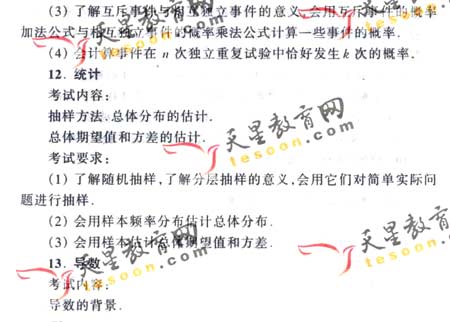 (3) 了解互斥事件与相互独立事件的意义,会用互斥事件的概率
加法公式与相互独立事件的概率乘法公式计算一些事件的概率.
(4) 会计算事件在 n 次独立重复试验中恰好发生 k 次的概率.
12. 统计
考试内容:
抽样方法.总体分布的估计.
总体期望值和方差的估计.
考试要求:
(1) 了解随机抽样,了解分层抽样的意义,会用它们对简单实际问
题进行抽样.
(2) 会用样本频率分布估计总体分布.
(3) 会用样本估计总体期望值和方差.
13. 导数
考试内容:
导数的背景.
天星教育网
tesoon.com
天星教育网
tesoon.com
天星教育网
tesoon.com
天星教育网
tesoon.com